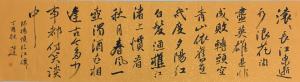 滚滚長江東逝
水浪花淘
盡英雄是非
成敗轉頭空
青山依舊在
幾度夕陽紅
白髮漁樵江
渚上慣看
秋月春風一
壺濁酒喜相
逢古今多少
事都付笑談
中